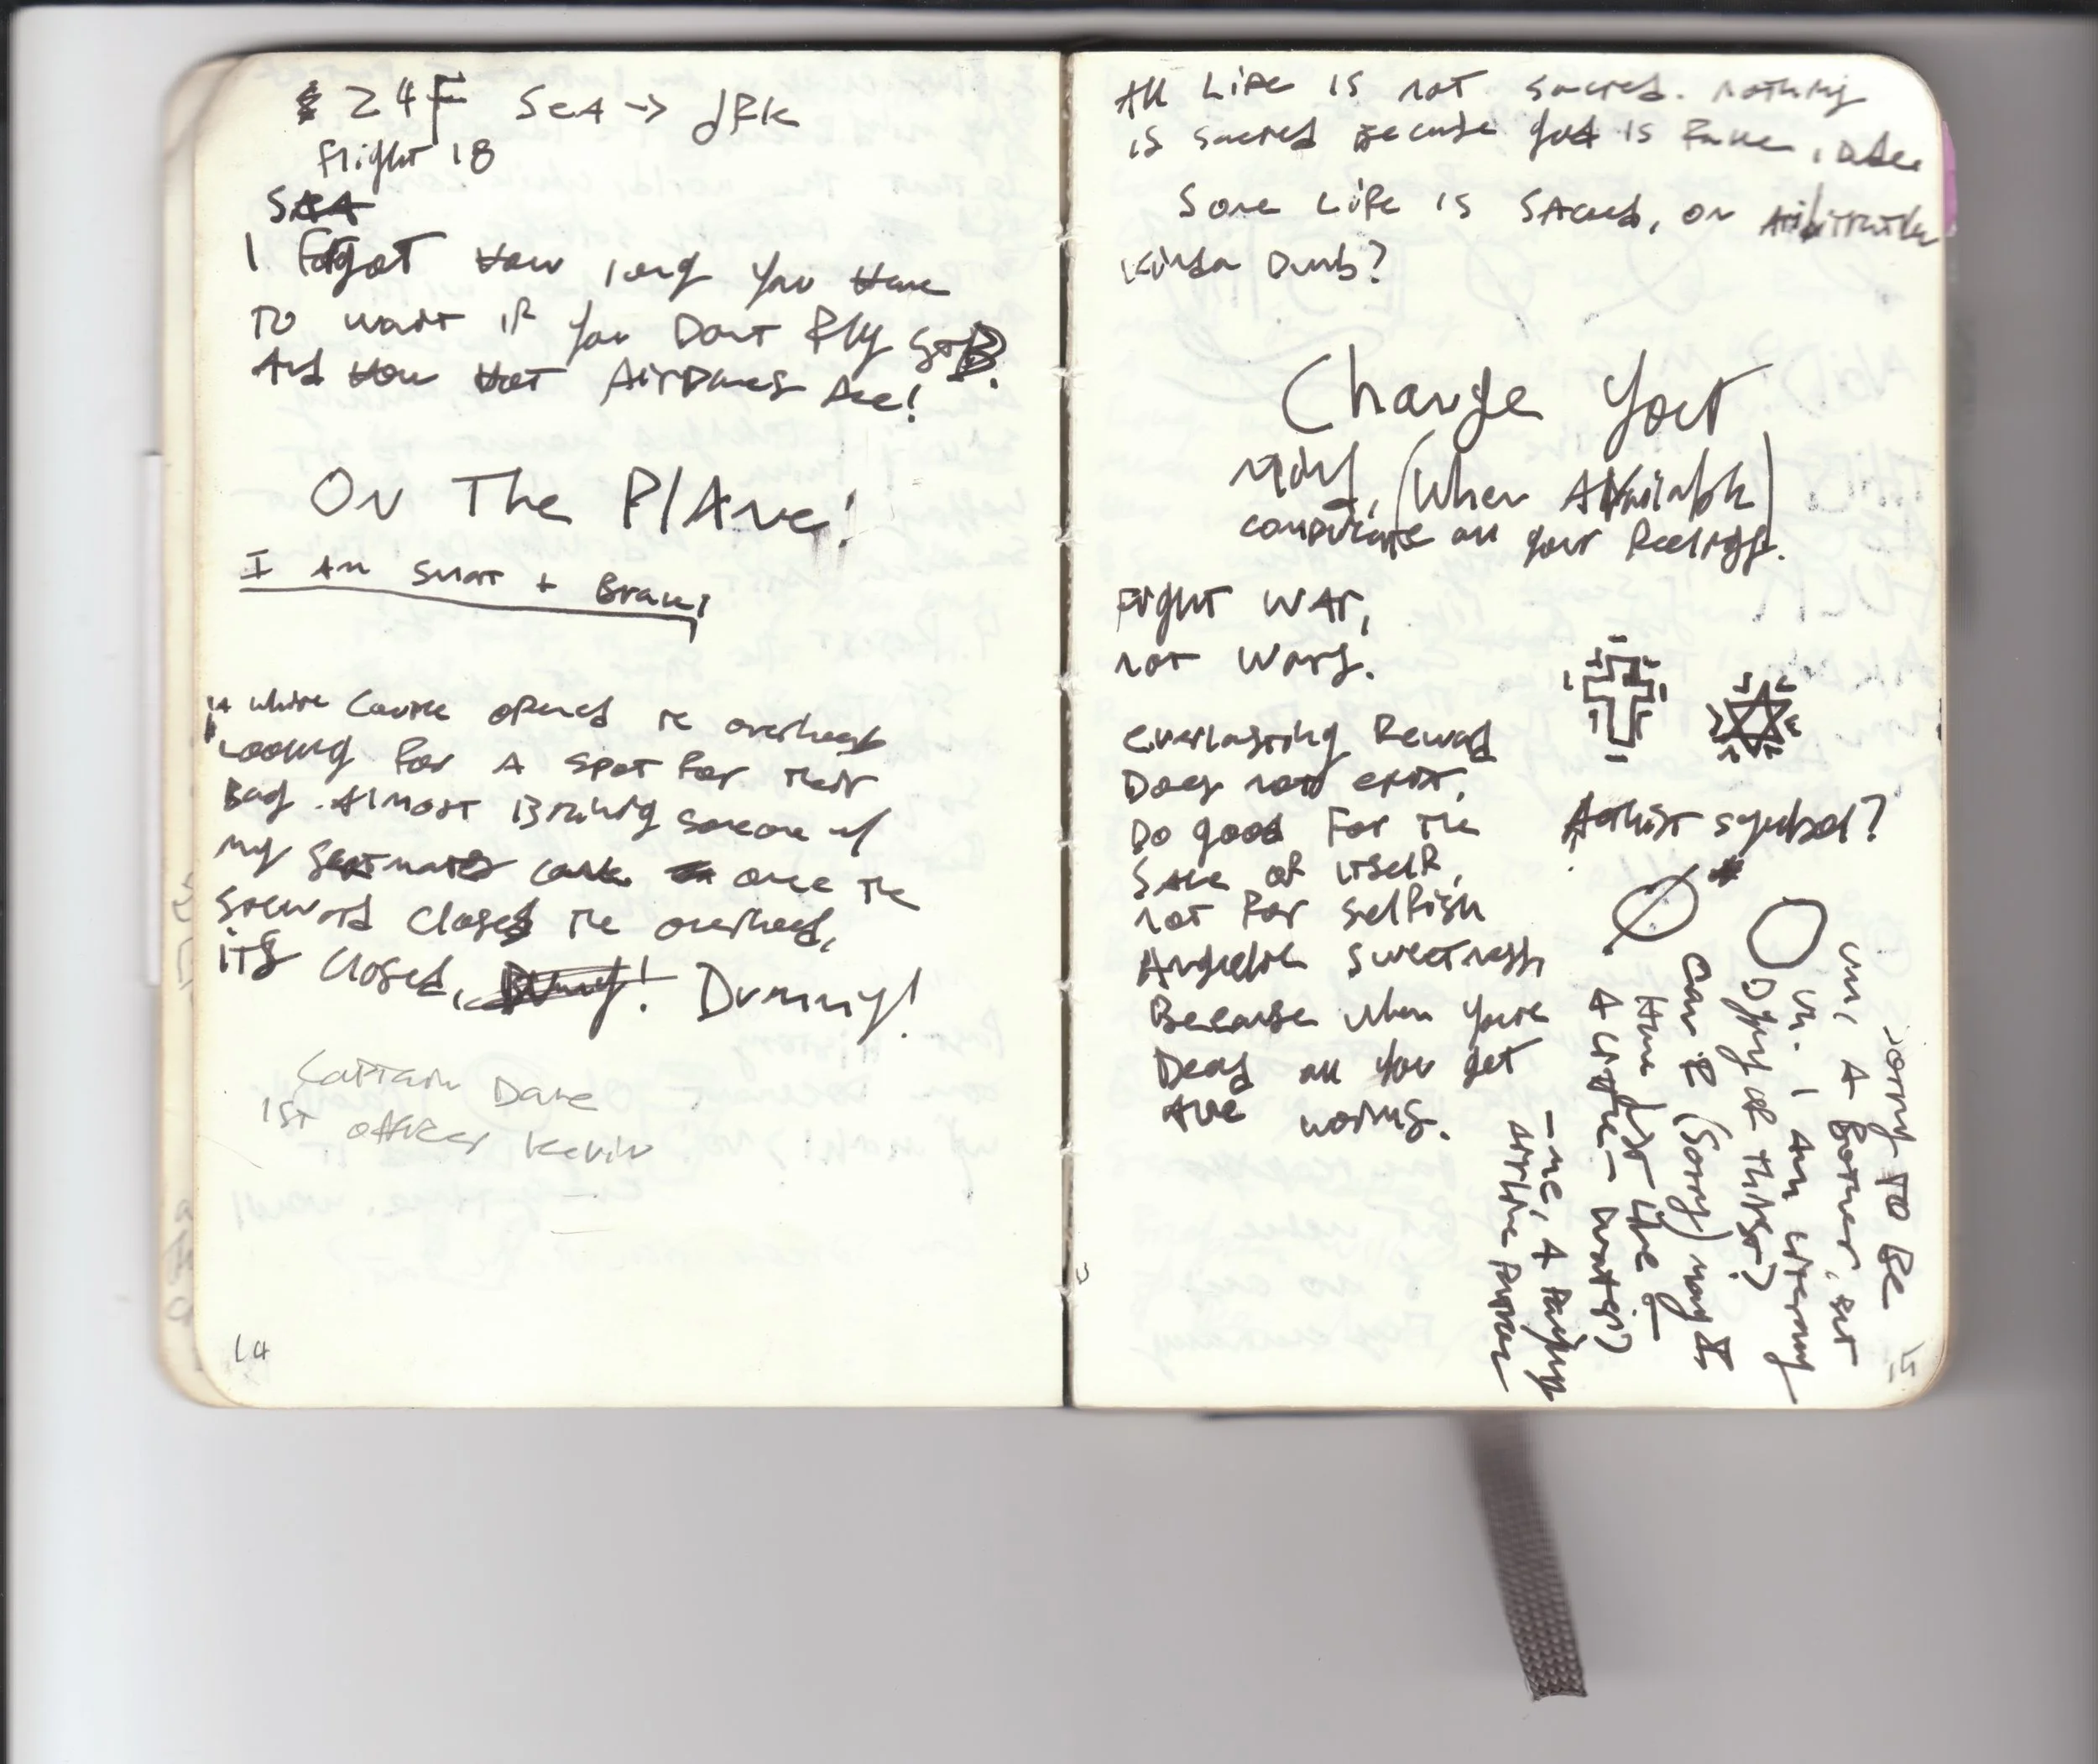 24F SeA → JFK
Flight 18
SEA
I Forgot How long You Have
To wait if you Dont Fly
And How Hot AirPlanes Are!
On The PlAne!
I Am Smart + Brave!
A white Couple opened the overhead
Looking For A spot For their
Bag. Almost Braining someone w/
my seatmates cane. once the
steward closes the overhead,
its closed, Dummy!
Captain Dave
1st officer Kevin
14
All Life is not sacred. nothing
is sacred Because god is Fake,
Some Life is sacred, or Arbitrarily
Kinda Dumb?
Change Your
mind, (When Available)
complicate all your feelings.
Fight WAr,
not Wars.
everlasting Reward
Does not exist.
Do good For the
Sake of itself,
not For selfish
Angelic sweetness
Because when you're
Dead all you get
Are worms.
Atheist symbol?
Sorry To Be
um, A Bother, but
uh. I Am literally
Dying of thirst?
Can I (Sorry) may I
Have Just like a
A Little - water?
- me, A Paying
Airline Patron
15